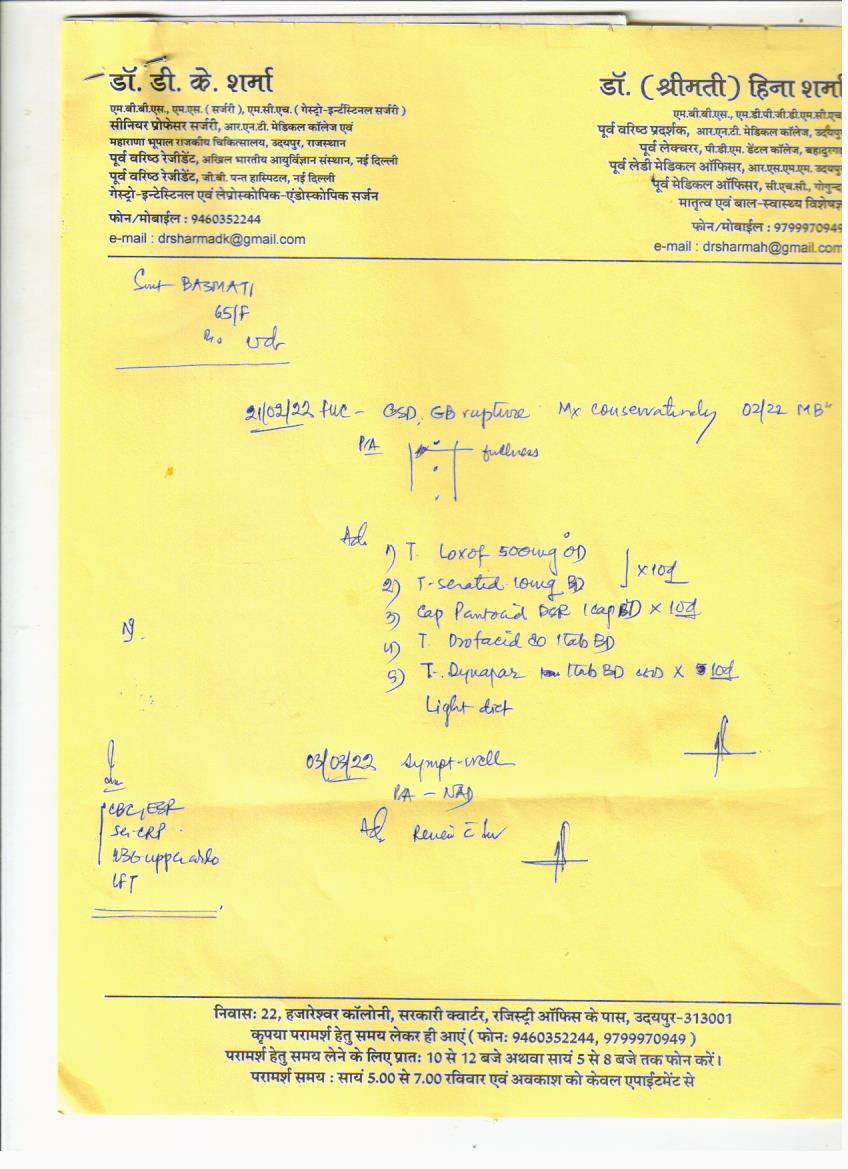 डॉ. डी. के. शर्मा
एम.बी.बी.एस., एम.एस. ( सर्जरी ), एम.सी.एच. ( गेस्ट्रो-इन्टेंस्टिनल सर्जरी )
सीनियर प्रोफेसर सर्जरी, आर.एन.टी. मेडिकल कॉलेज एवं
महाराणा भूपाल राजकीय चिकित्सालय, उदयपुर, राजस्थान
पूर्व वरिष्ठ रेजीडेंट, अखिल भारतीय आयुर्विज्ञान संस्थान, नई दिल्ली
पूर्व वरिष्ठ रेजीडेंट, जी.बी. पन्त हास्पिटल, नई दिल्ली
गेस्ट्रो-इन्टेस्टिनल एवं लेप्रोस्कोपिक-एंडोस्कोपिक सर्जन
फोन/मोबाईल : 9460352244
e-mail : drsharmadk@gmail.com
डॉ. (श्रीमती) हिना शर्मा
एम.बी.बी.एस., एम.डी.पी.जी.डी.एम.सी.एच
पूर्व वरिष्ठ प्रदर्शक, आर.एन.टी. मेडिकल कॉलेज, उदयपुर
पूर्व लेक्चरर, पी.डी.एम. डेंटल कॉलेज, बहादुरगढ़
पूर्व लेडी मेडिकल ऑफिसर, आर.एस.एम.एम. उदयपुर
पूर्व मेडिकल ऑफिसर, सी.एच.सी., गोगुन्दा
मातृत्व एवं बाल-स्वास्थ्य विशेषज्ञ
फोन/मोबाईल : 9799970949
e-mail : drsharmah@gmail.com
Smt BASMATI
65/F
R/o Udr
21/02/22 FUC - GSD, GB rupture Mx conservatively 02/22 MB
P/A fullness
Ad.
1) T. Loxof 500mg OD
2) T. seratid 10mg BD } x 10d
3) Cap Pantocid DSR 1cap BD x 10d
4) T. Drofacid 80 1tab BD
5) T. Dynapar 1tab BD x 10d
Light diet
N.
03/03/22 Sympt-well
P/A - NAD
Ad. Review c Inv
Inv
CBC, ESR
Se. CRP
USG upper abdo
LFT
निवास: 22, हजारेश्वर कॉलोनी, सरकारी क्वार्टर, रजिस्ट्री ऑफिस के पास, उदयपुर-313001
कृपया परामर्श हेतु समय लेकर ही आएं ( फोन: 9460352244, 9799970949 )
परामर्श हेतु समय लेने के लिए प्रात: 10 से 12 बजे अथवा सायं 5 से 8 बजे तक फोन करें।
परामर्श समय : सायं 5.00 से 7.00 रविवार एवं अवकाश को केवल एपाईटमेंट से